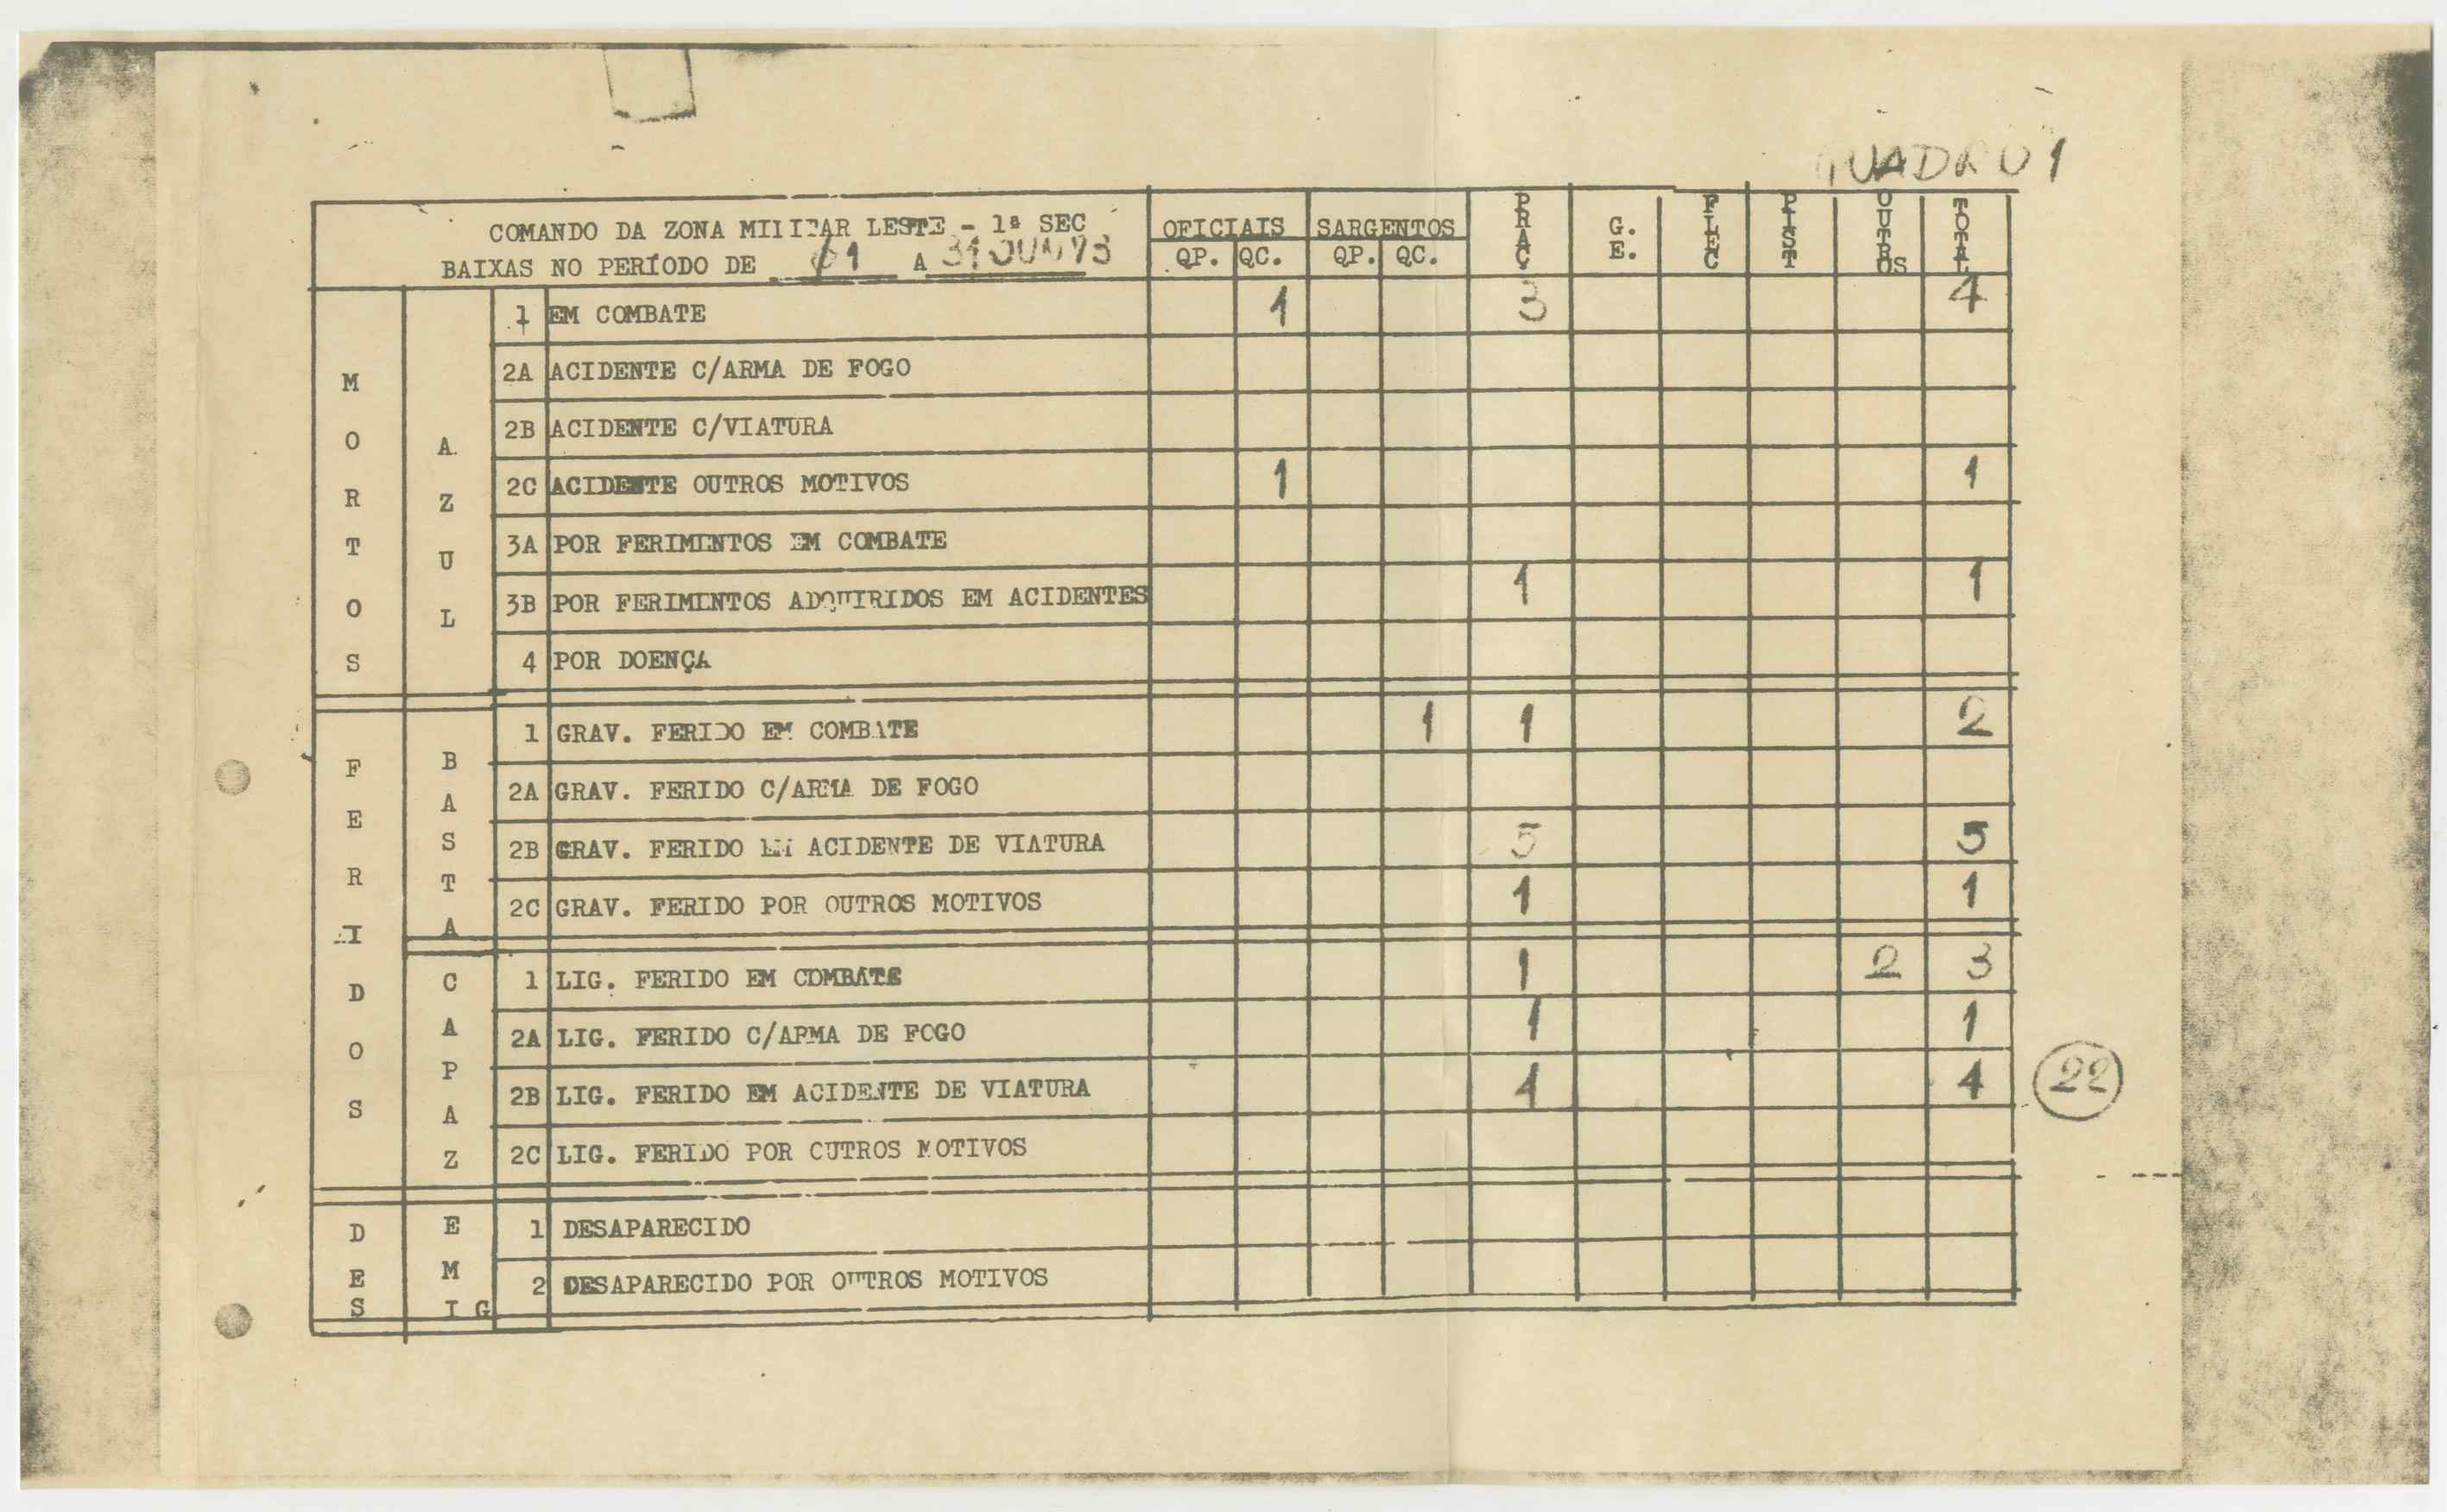 QUADRO 1
COMANDO DA ZONA MILITAR LESTE - 1ª SEC
BAIXAS NO PERÍODO DE 01 A 31 JUN 73
OFICIAIS SARGENTOS PRAÇ G. E. FLEC PIST OUTROS TOTAL
QP. QC. QP. QC.
MORTOS
AZUL
1 EM COMBATE 1 3 4
2A ACIDENTE C/ARMA DE FOGO
2B ACIDENTE C/VIATURA
2C ACIDENTE OUTROS MOTIVOS 1 1
3A POR FERIMENTOS EM COMBATE
3B POR FERIMENTOS ADQUIRIDOS EM ACIDENTES 1 1
4 POR DOENÇA
FERIDOS
BASTA
1 GRAV. FERIDO EM COMBATE 1 1 2
2A GRAV. FERIDO C/ARMA DE FOGO
2B GRAV. FERIDO EM ACIDENTE DE VIATURA 5 5
2C GRAV. FERIDO POR OUTROS MOTIVOS 1 1
CAPAZ
1 LIG. FERIDO EM COMBATE 1 2 3
2A LIG. FERIDO C/ARMA DE FOGO 1 1
2B LIG. FERIDO EM ACIDENTE DE VIATURA 4 4 22
2C LIG. FERIDO POR OUTROS MOTIVOS
DES
EMIG
1 DESAPARECIDO
2 DESAPARECIDO POR OUTROS MOTIVOS